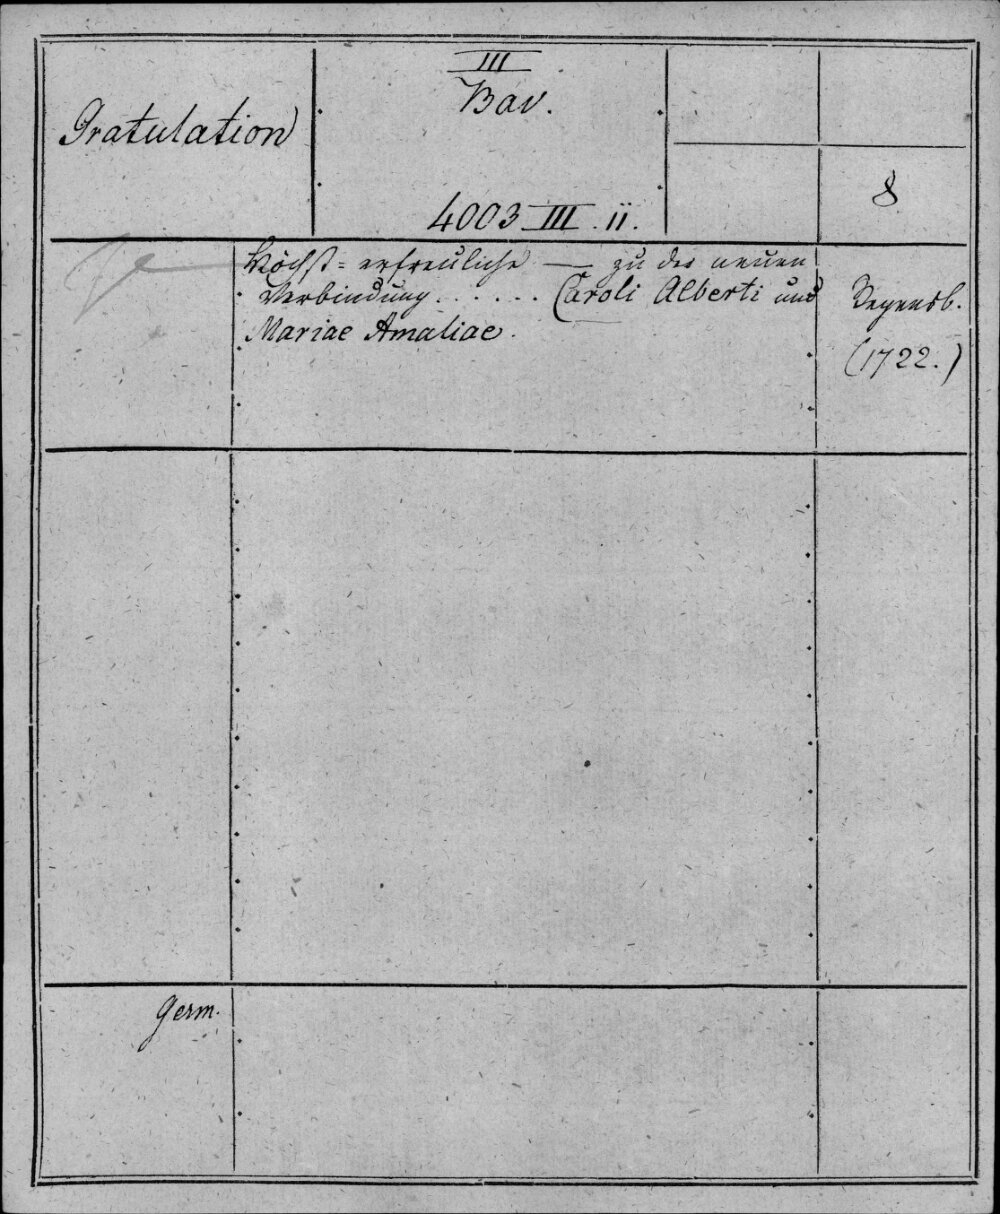 Gratulation
III
Bav.
4003 III . ii.
8
Höchst= erfreuliche — zu der neuen
Verbindung . . . . . . Caroli Alberti und
Mariae Amaliae.
Regensb.
(1722.)
Germ.